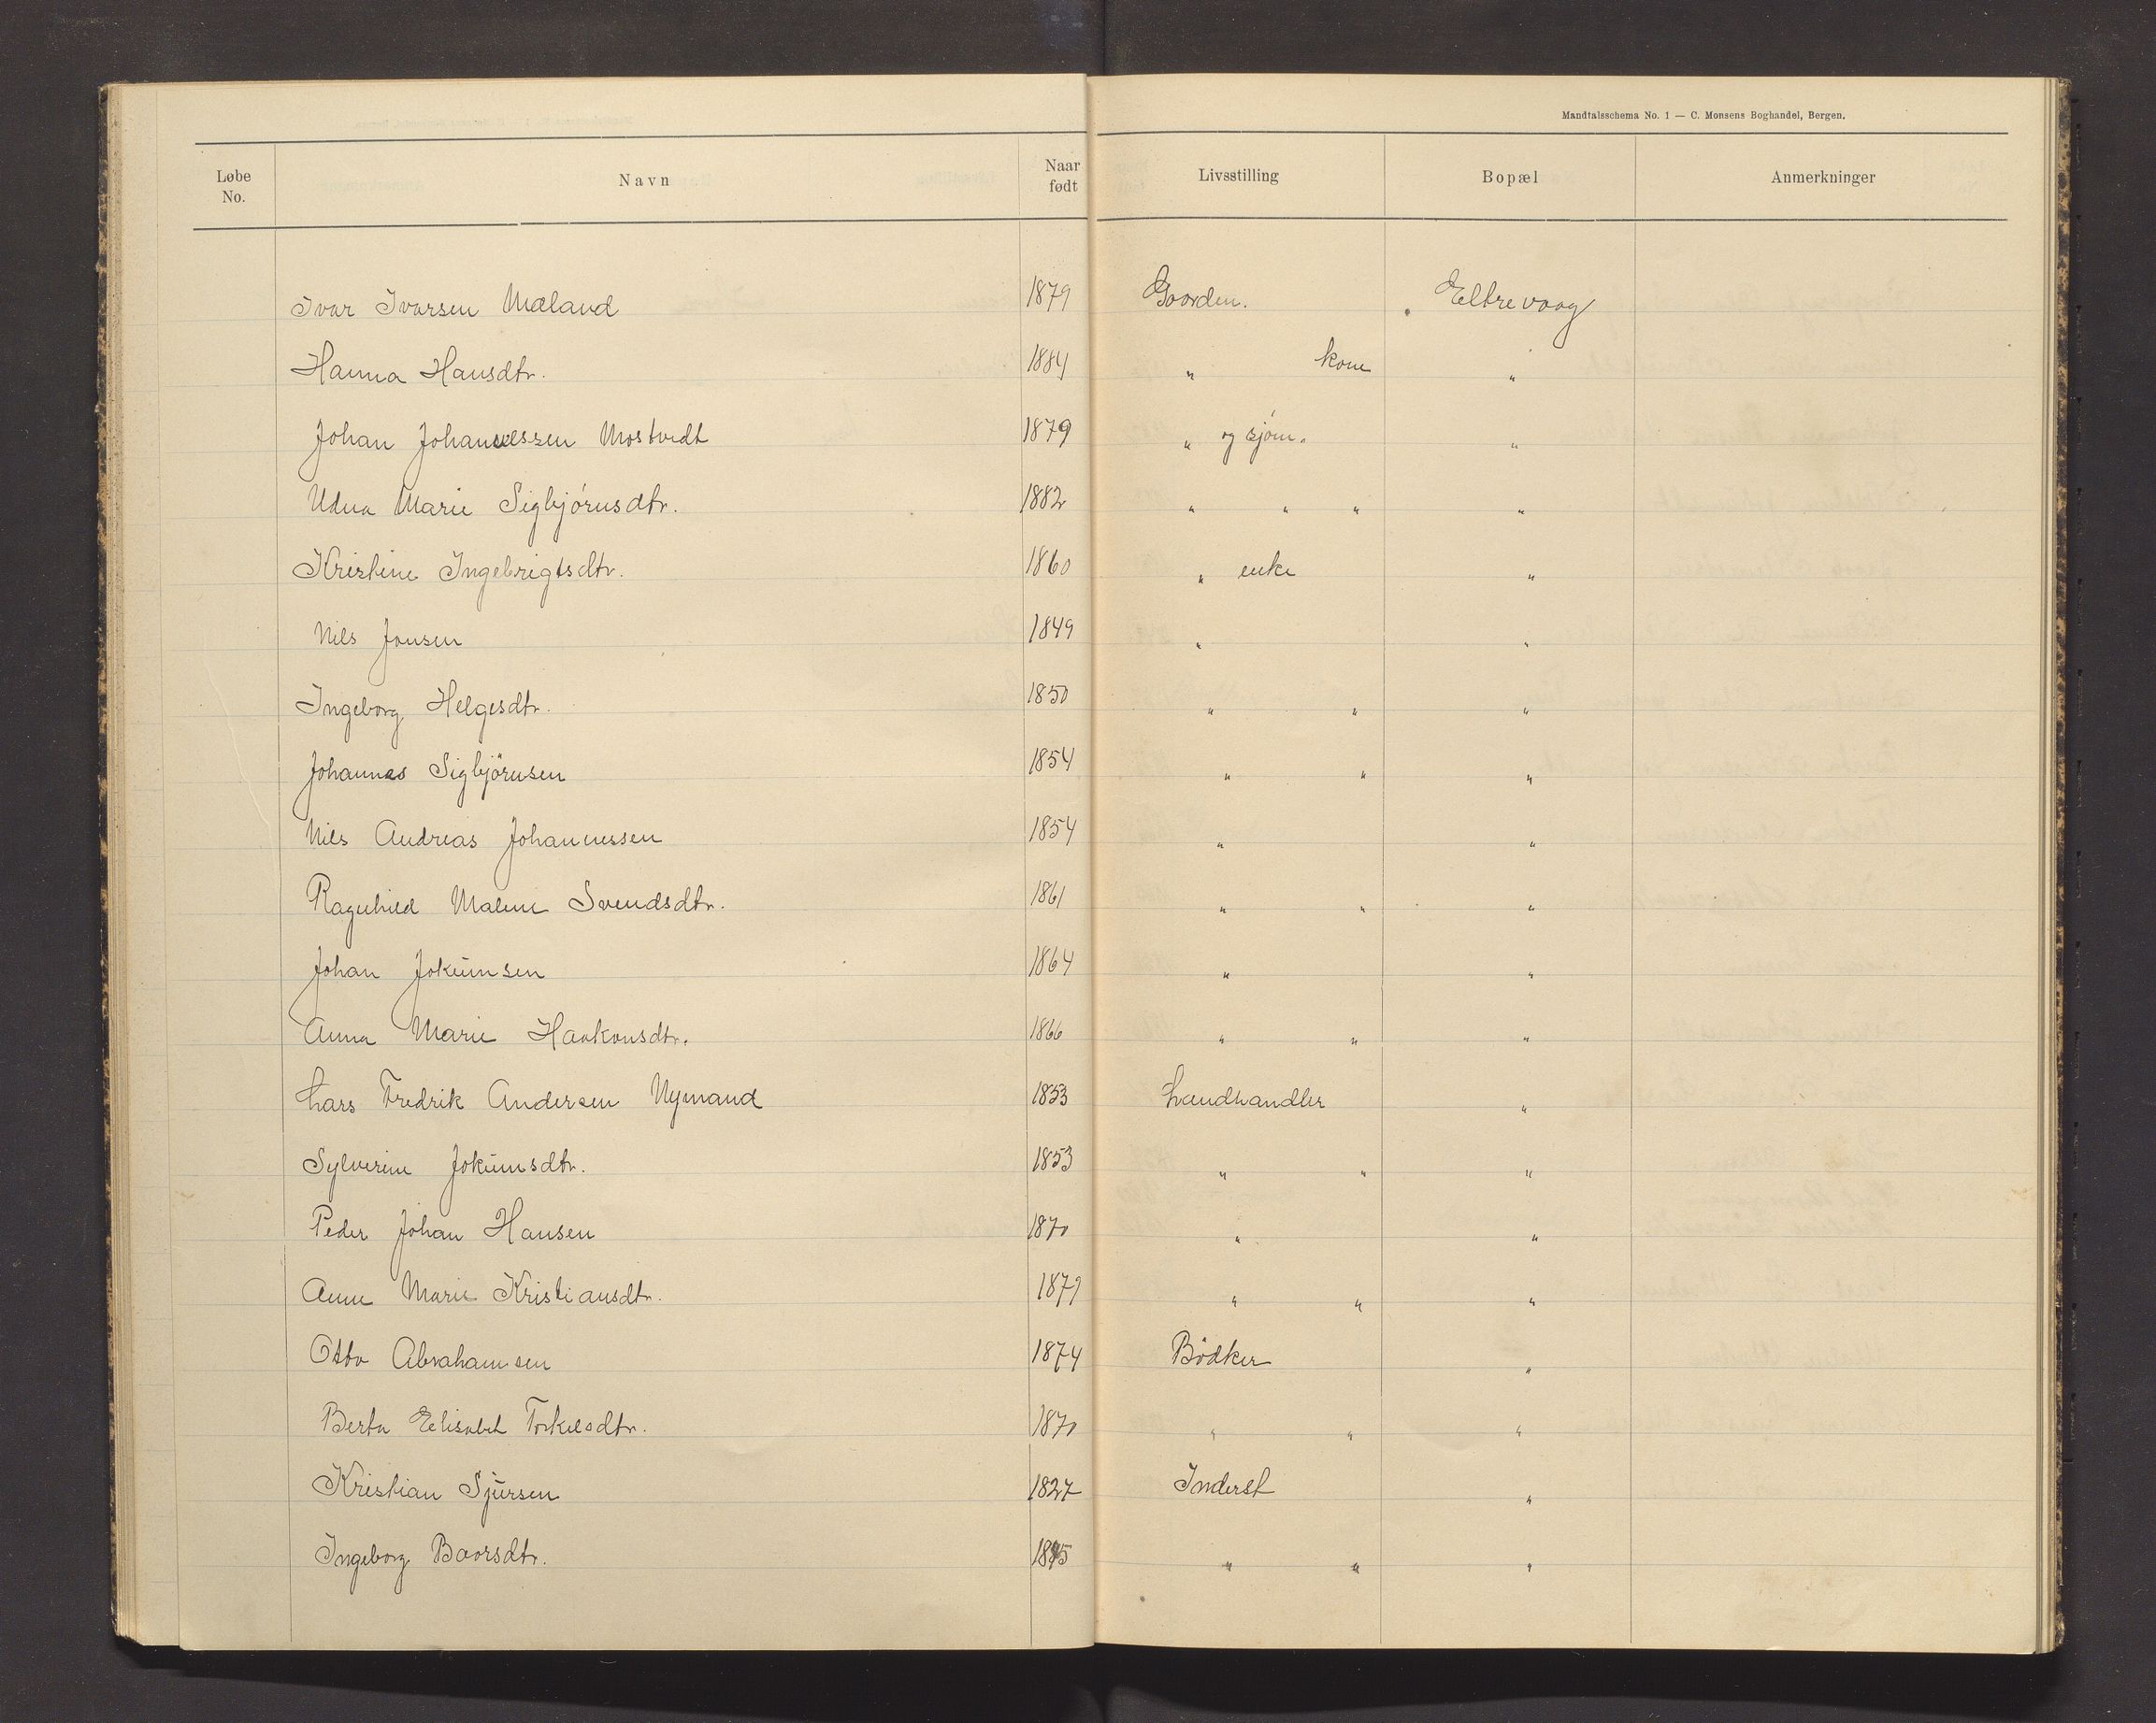 Mandtalsschema No. 1 — C. Monsens Boghandel, Bergen.
Løbe No. Navn Naar født Livsstilling Bopæl Anmerkninger
Ivar Ivarsen Mæland 1879 Gaardm. Eltrevaag
Hanna Hansdtr. 1884 " kone "
Johan Johannessen Mostvedt 1879 " og sjøm. "
Udna Marie Sigbjørnsdtr. 1882 " " " "
Kristine Ingebrigtsdtr. 1860 " enke "
Nils Jonsen 1849 " "
Ingeborg Helgesdtr. 1850 " " "
Johannes Sigbjørnsen 1854 " " "
Nils Andreas Johannessen 1854 " "
Ragnhild Malene Svendsdtr. 1861 " " "
Johan Jokumsen 1864 " "
Anna Marie Haakonsdtr. 1866 " " "
Lars Fredrik Andersen Nymand 1853 Landhandler "
Sylverine Jokumsdtr. 1853 " " "
Peder Johan Hansen 1870 " "
Anne Marie Kristiansdtr. 1879 " " "
Otto Abrahamsen 1874 Bødker "
Berta Elisabet Torkelsdtr. 1870 " " "
Kristian Sjursen 1827 Inderst "
Ingeborg Baarsdtr. " " "